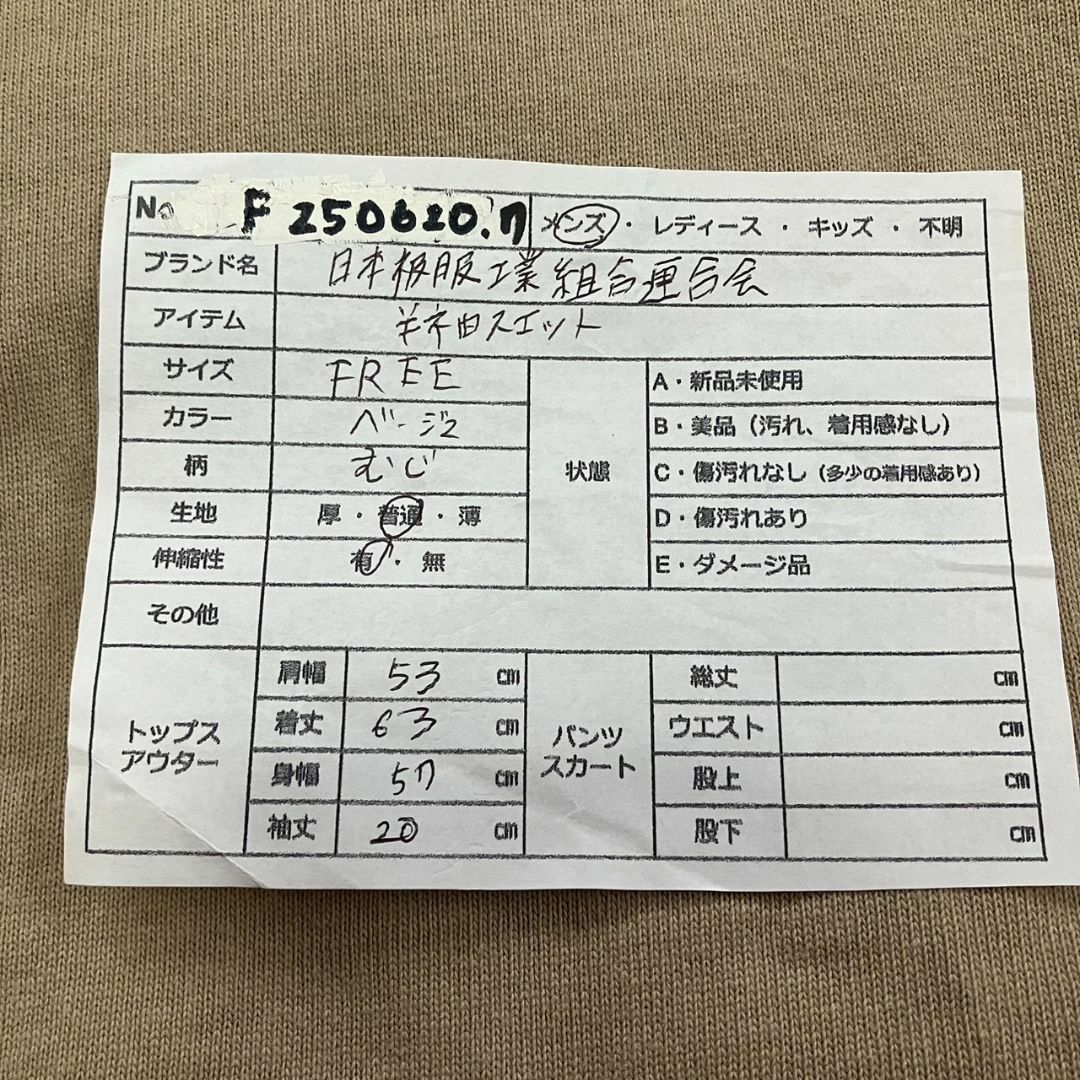 No F 250620.7 メンズ・レディース・キッズ・不明
ブランド名 日本被服工業組合連合会
アイテム 半袖スエット
サイズ FREE
カラー ベージュ
柄 むじ
生地 厚・普通・薄
伸縮性 有・無
状態
A・新品未使用
B・美品（汚れ、着用感なし）
C・傷汚れなし（多少の着用感あり）
D・傷汚れあり
E・ダメージ品
その他
トップス
アウター
肩幅 53 cm
着丈 63 cm
身幅 57 cm
袖丈 20 cm
パンツ
スカート
総丈 cm
ウエスト cm
股上 cm
股下 cm